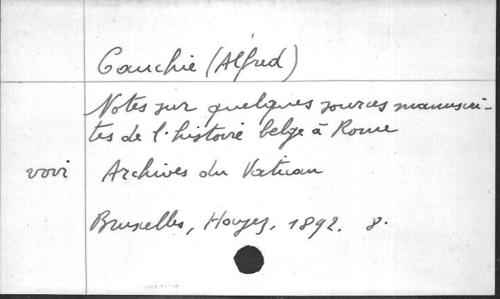 Cauchie (Alfred)
Notes sur quelques sources manuscri-
tes de l'histoire belge à Rome
vovi Archives du Vatican
Bruxelles, Hayez, 1892. 8.